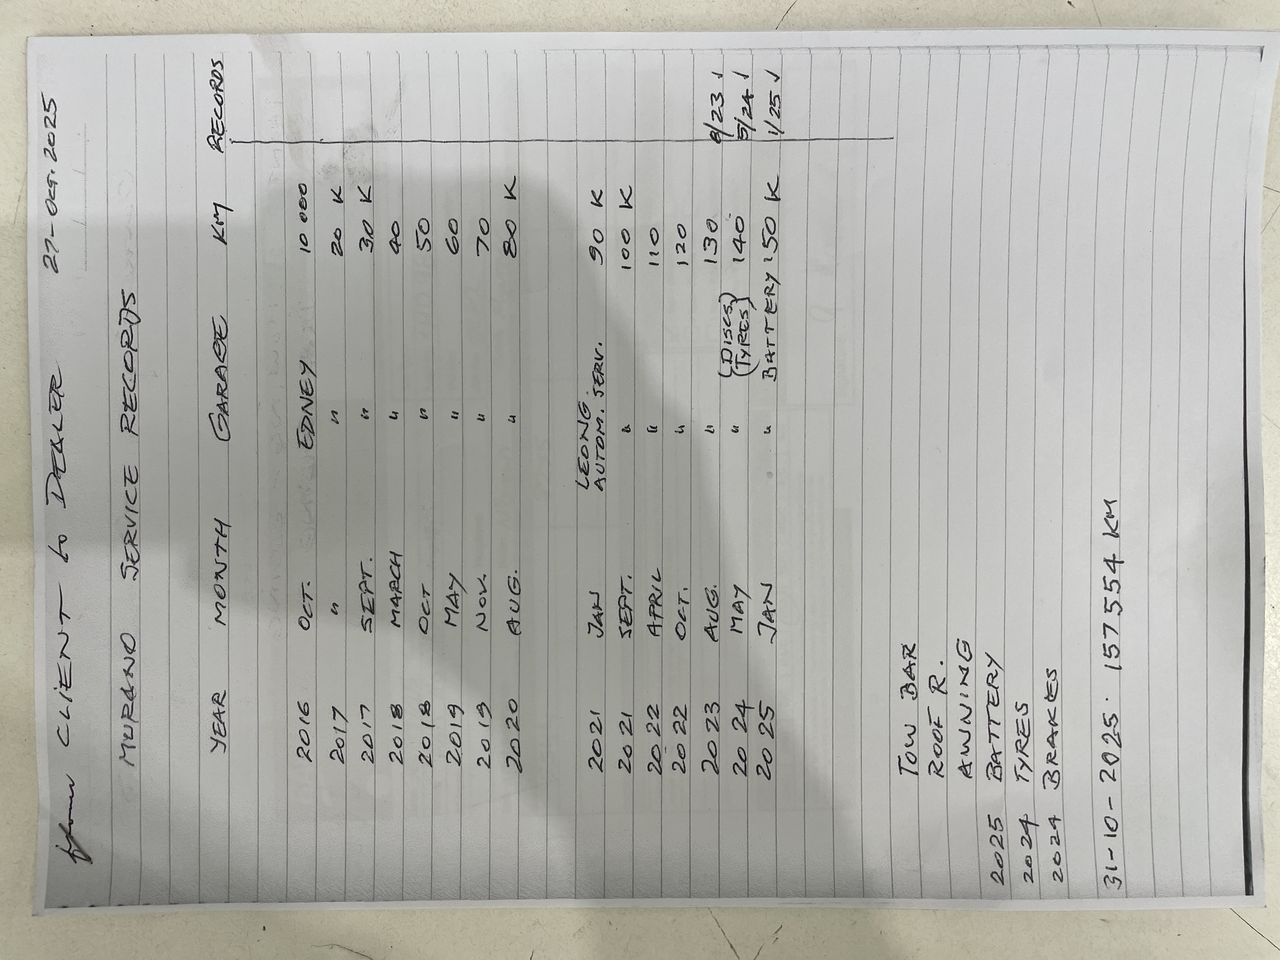 from CLIENT to DEALER 27-Oct. 2025
MURANO SERVICE RECORDS
YEAR MONTH GARAGE KM RECORDS
2016 OCT. EDNEY 10 000
2017 " " 20 K
2017 SEPT. " 30 K
2018 MARCH " 40
2018 OCT " 50
2019 MAY " 60
2019 NOV. " 70
2020 AUG. " 80 K
LEONG.
2021 JAN AUTOM. SERV. 90 K
2021 SEPT. " 100 K
2022 APRIL " 110
2022 OCT. " 120
2023 AUG. " 130 8/23 ✓
2024 MAY " (DISCS) (TYRES) 140 5/24 ✓
2025 JAN " BATTERY 150 K 1/25 ✓
TOW BAR
ROOF R.
AWNING
2025 BATTERY
2024 TYRES
2024 BRAKES
31-10-2025. 157554 KM